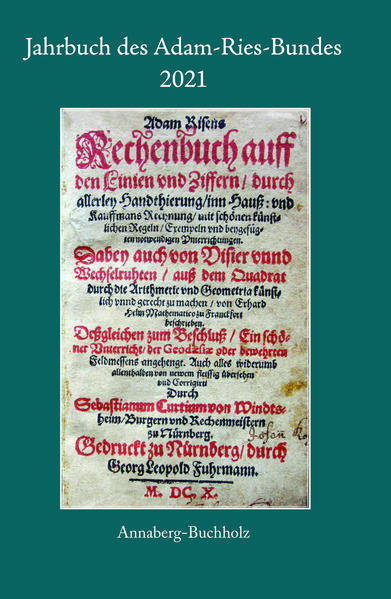 Jahrbuch des Adam-Ries-Bundes
2021
Adam Risens
Rechenbuch auff
den Linien vnd Ziffern / durch
allerley Handthierung / inn Hauß: vnd
Kauffmans Rechnung / mit schönen künst-
lichen Regeln / Exempeln vnd beygefüg-
ten notwendigen Vnterrichtungen.
Dabey auch von Visier vnnd
Wechselruhten / auß dem Quadrat
durch die Arithmetic vnd Geometria künst-
lich vnnd gerecht zu machen / von Erhard
Helm Mathematico zu Franckfort
beschrieben.
Deßgleichen zum Beschluß / Ein schö-
ner Vnterricht / der Geodæsiæ oder bewehrten
Feldmessens angehengt. Auch alles widerumb
allenthalben von newem fleissig übersehen
vnd Corrigirt
Durch
Sebastianum Curtium von Windts-
heim / Burgern vnd Rechenmeistern
zu Nürnberg.
Gedruckt zu Nürnberg / durch
Georg Leopold Fuhrmann.
M. DC. X.
Annaberg-Buchholz